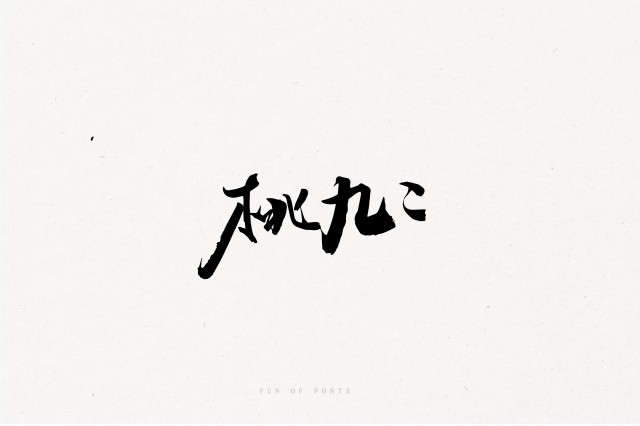 桃九こ
FUN OF FONTS